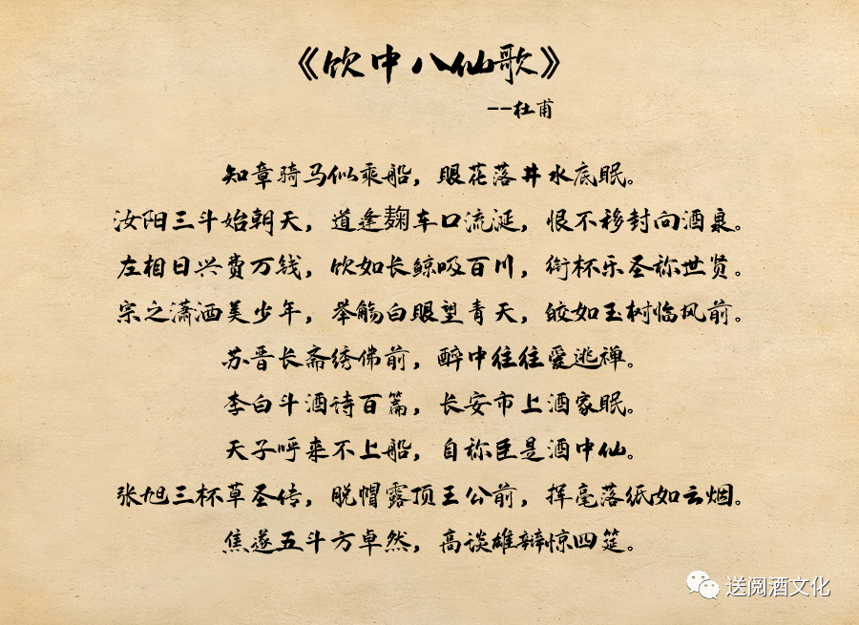 《饮中八仙歌》
--杜甫
知章骑马似乘船，眼花落井水底眠。
汝阳三斗始朝天，道逢麹车口流涎，恨不移封向酒泉。
左相日兴费万钱，饮如长鲸吸百川，衔杯乐圣称世贤。
宗之潇洒美少年，举觞白眼望青天，皎如玉树临风前。
苏晋长斋绣佛前，醉中往往爱逃禅。
李白斗酒诗百篇，长安市上酒家眠。
天子呼来不上船，自称臣是酒中仙。
张旭三杯草圣传，脱帽露顶王公前，挥毫落纸如云烟。
焦遂五斗方卓然，高谈雄辩惊四筵。
送阅酒文化